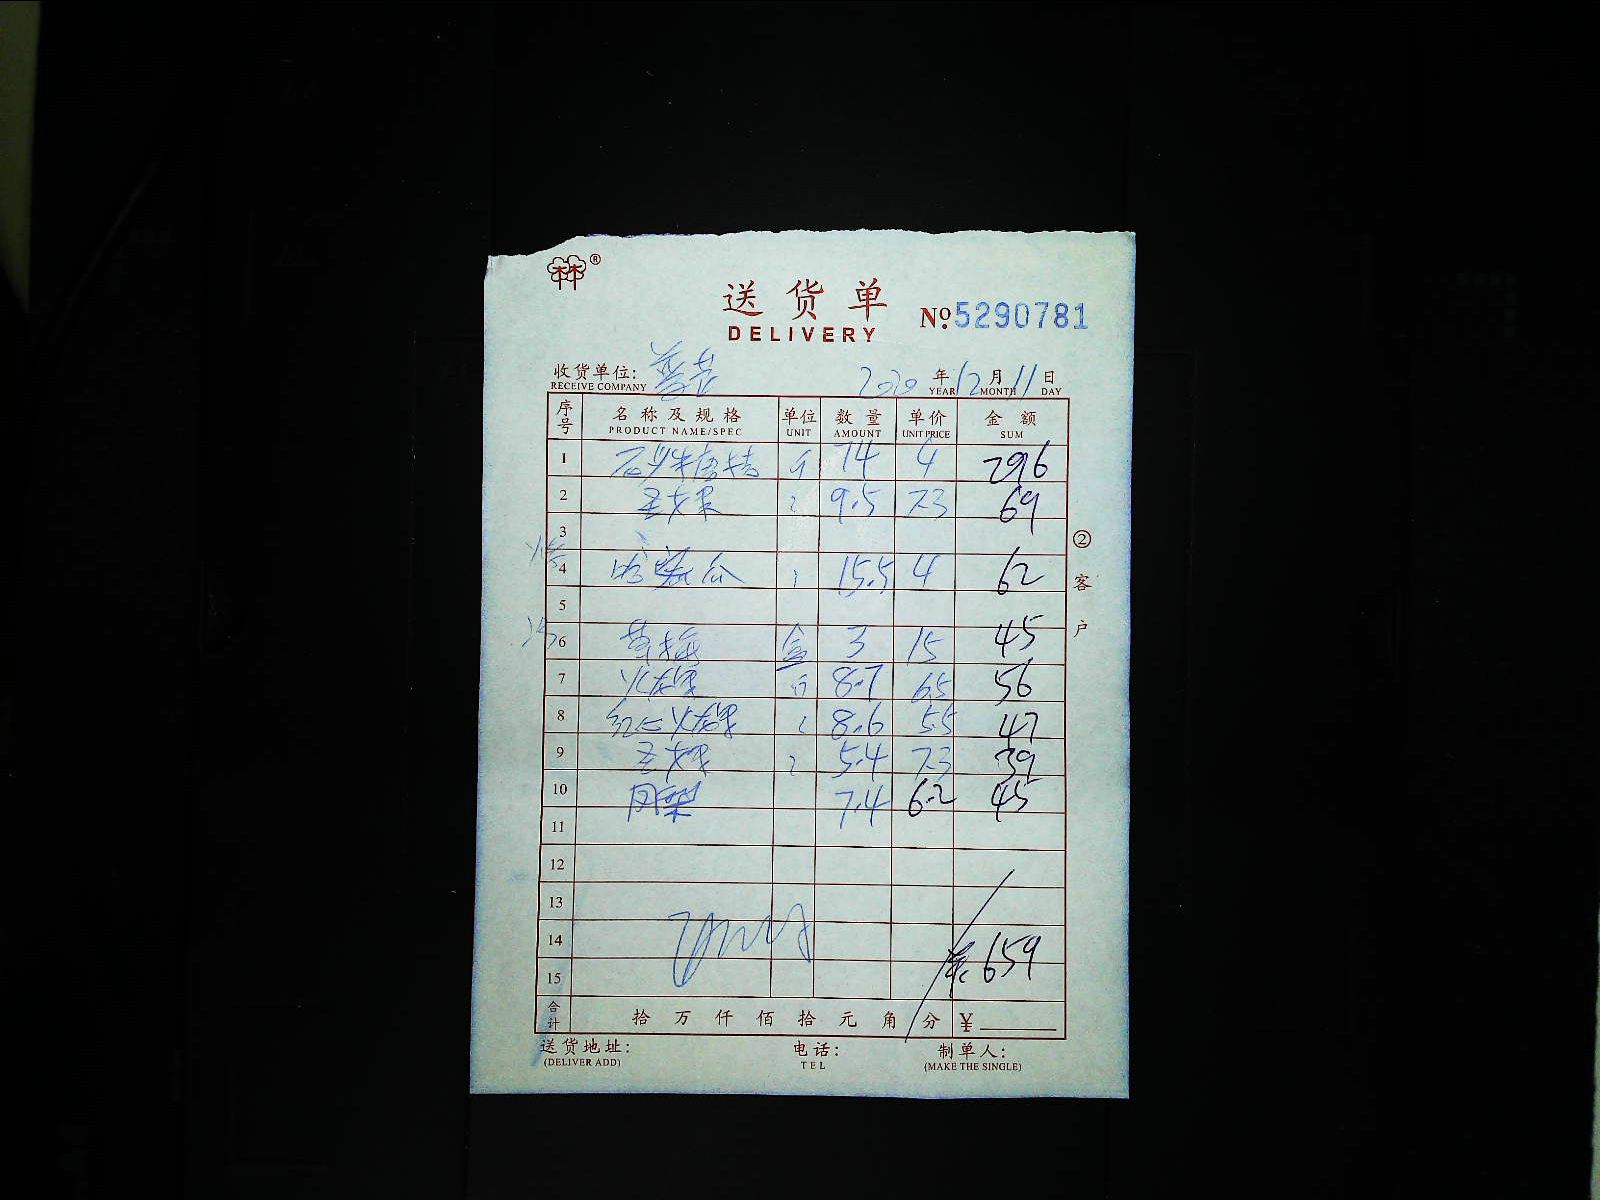 林®
送货单
DELIVERY
No 5290781
收货单位: 2020年12月11日
RECEIVE COMPANY YEAR MONTH DAY
序号 名称及规格 单位 数量 单价 金额
PRODUCT NAME/SPEC UNIT AMOUNT UNIT PRICE SUM
1 斤 74 4 296
2 9.5 7.3 69
3
4 哈蜜瓜 15.5 4 62
5
6 草梅 盒 3 15 45
7 火龙果 斤 8.7 6.5 56
8 红心火龙果 8.6 5.5 47
9 5.4 7.3 39
10 凤梨 7.4 6.2 45
11
12
13
14 659
15
合计 拾万仟佰拾元角分 ¥
②客户
送货地址: 电话: 制单人:
(DELIVER ADD) TEL (MAKE THE SINGLE)